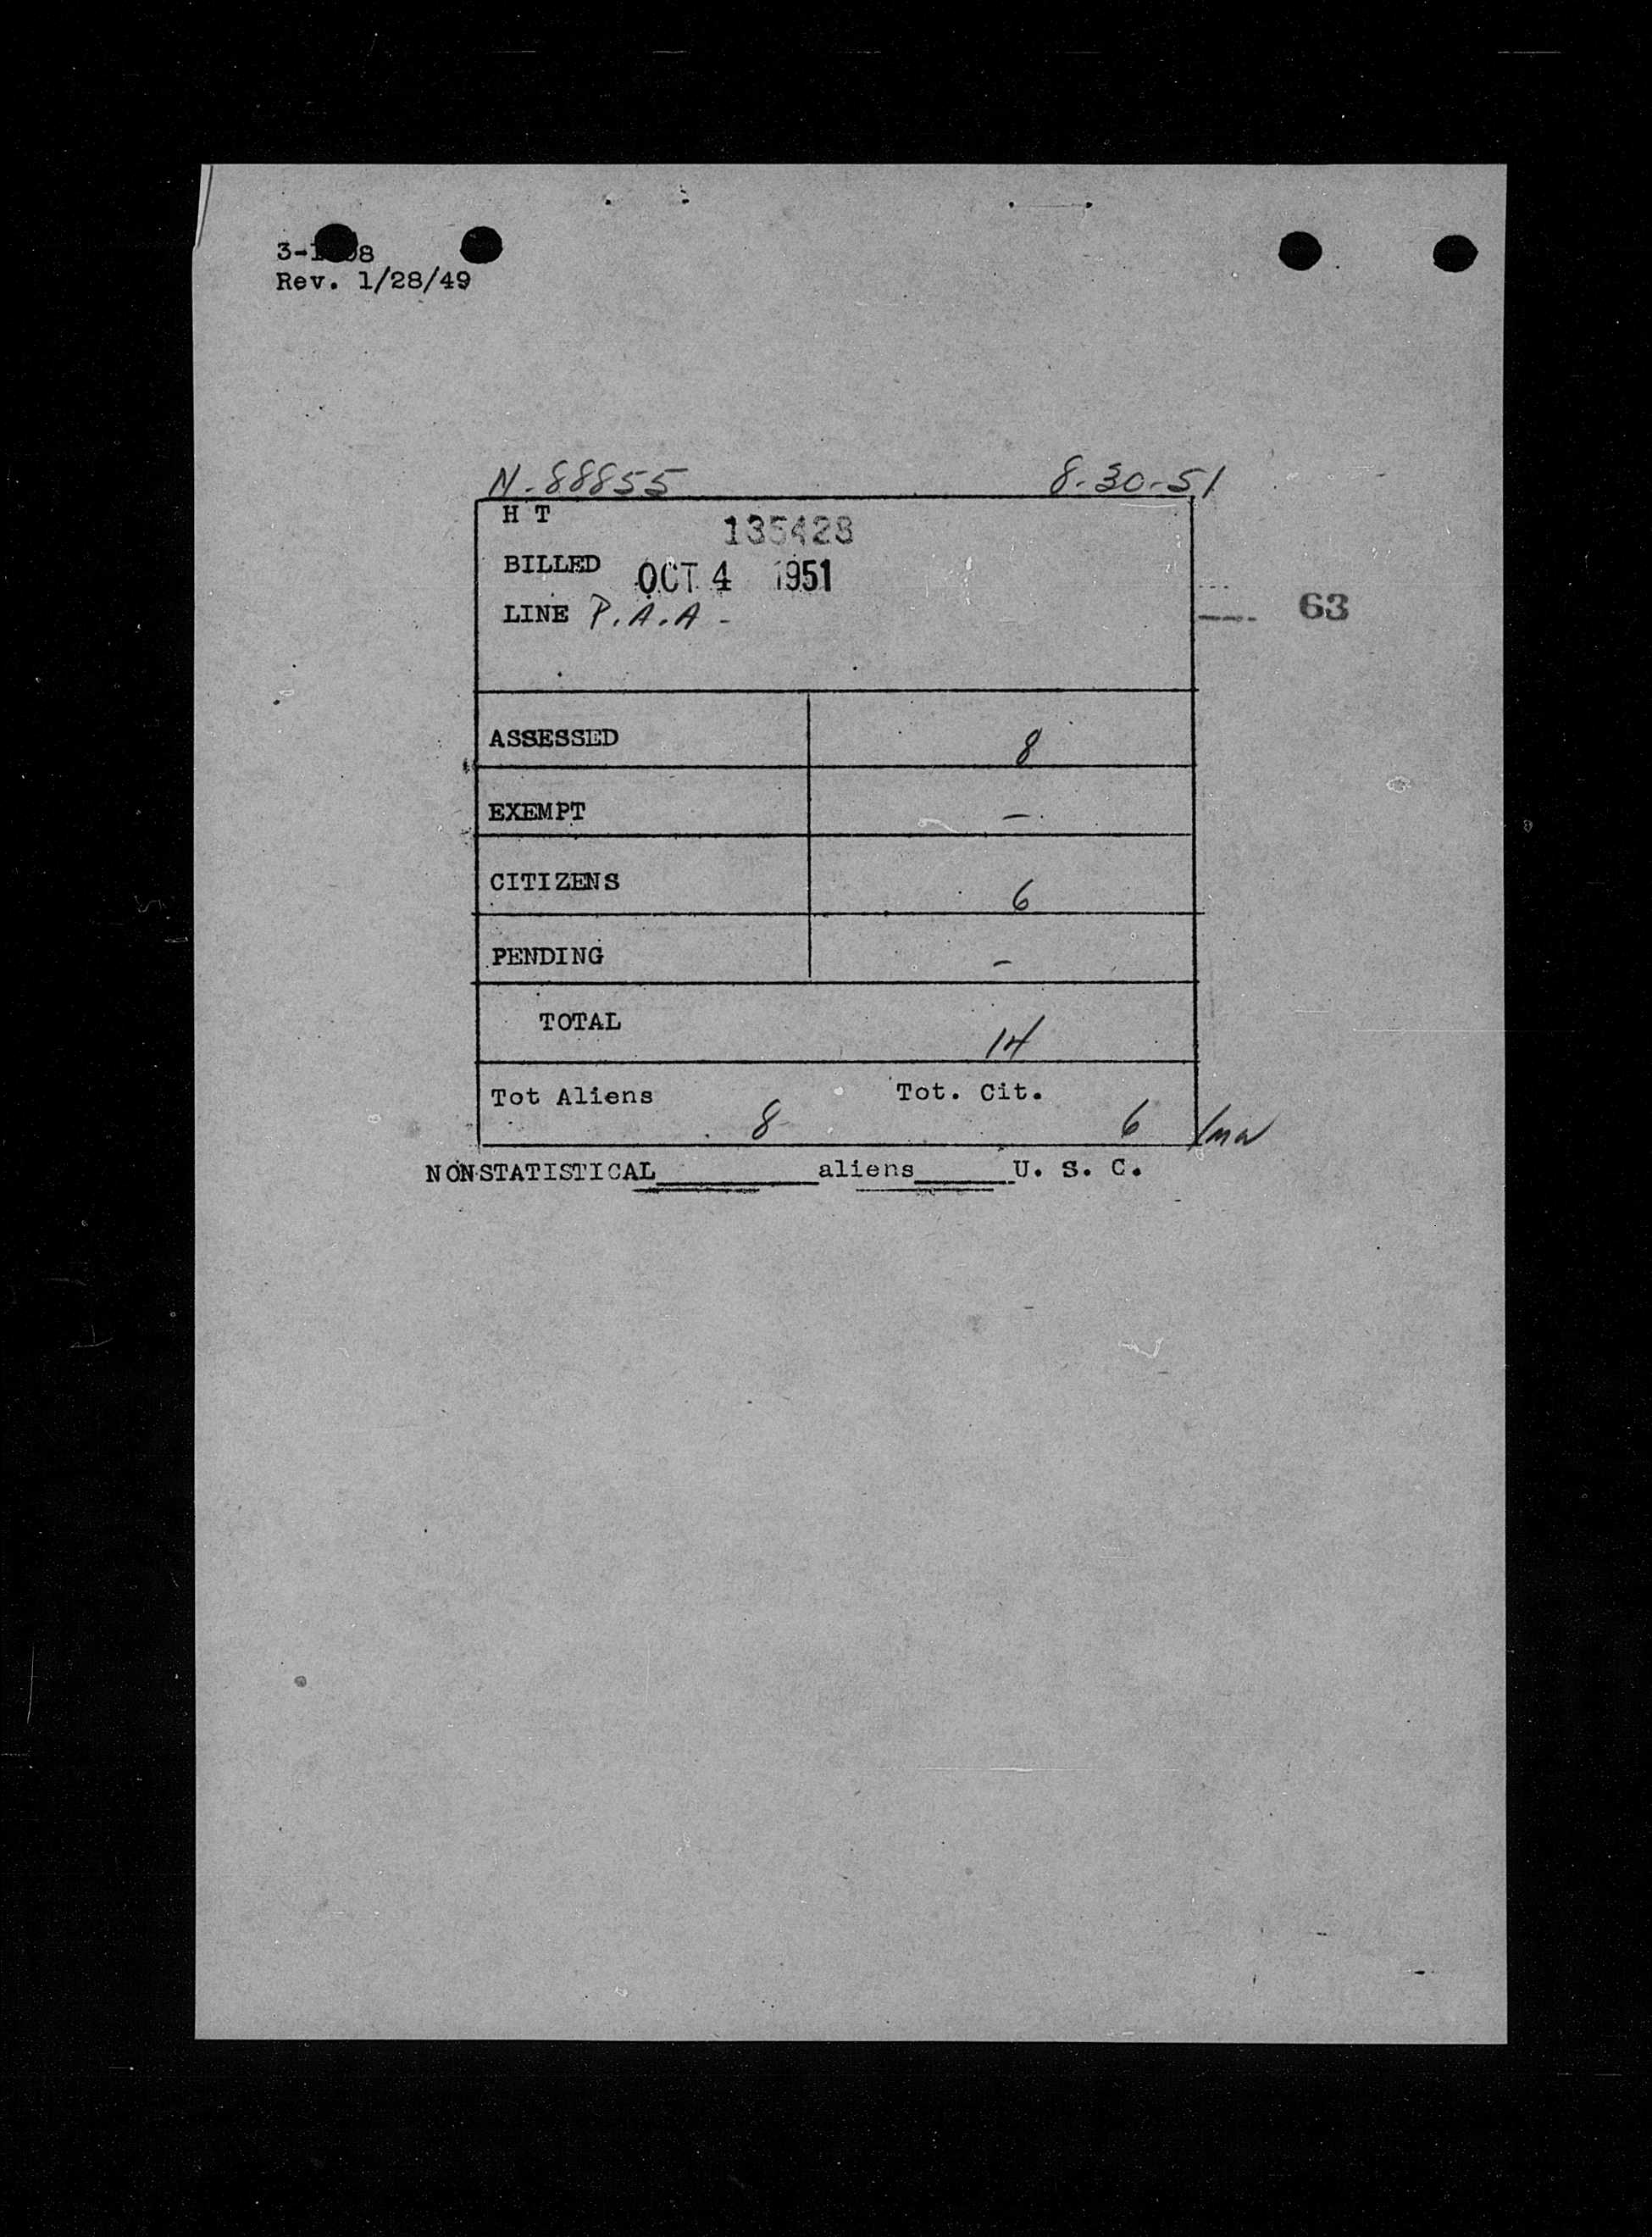 Rev. 1/28/49
N-88855 8-30-51
H T
135428
BILLED OCT 4 1951
LINE P.A.A -
63
ASSESSED 8
EXEMPT –
CITIZENS 6
PENDING –
TOTAL 14
Tot Aliens 8 Tot. Cit. 6
NONSTATISTICAL________aliens_____U. S. C.